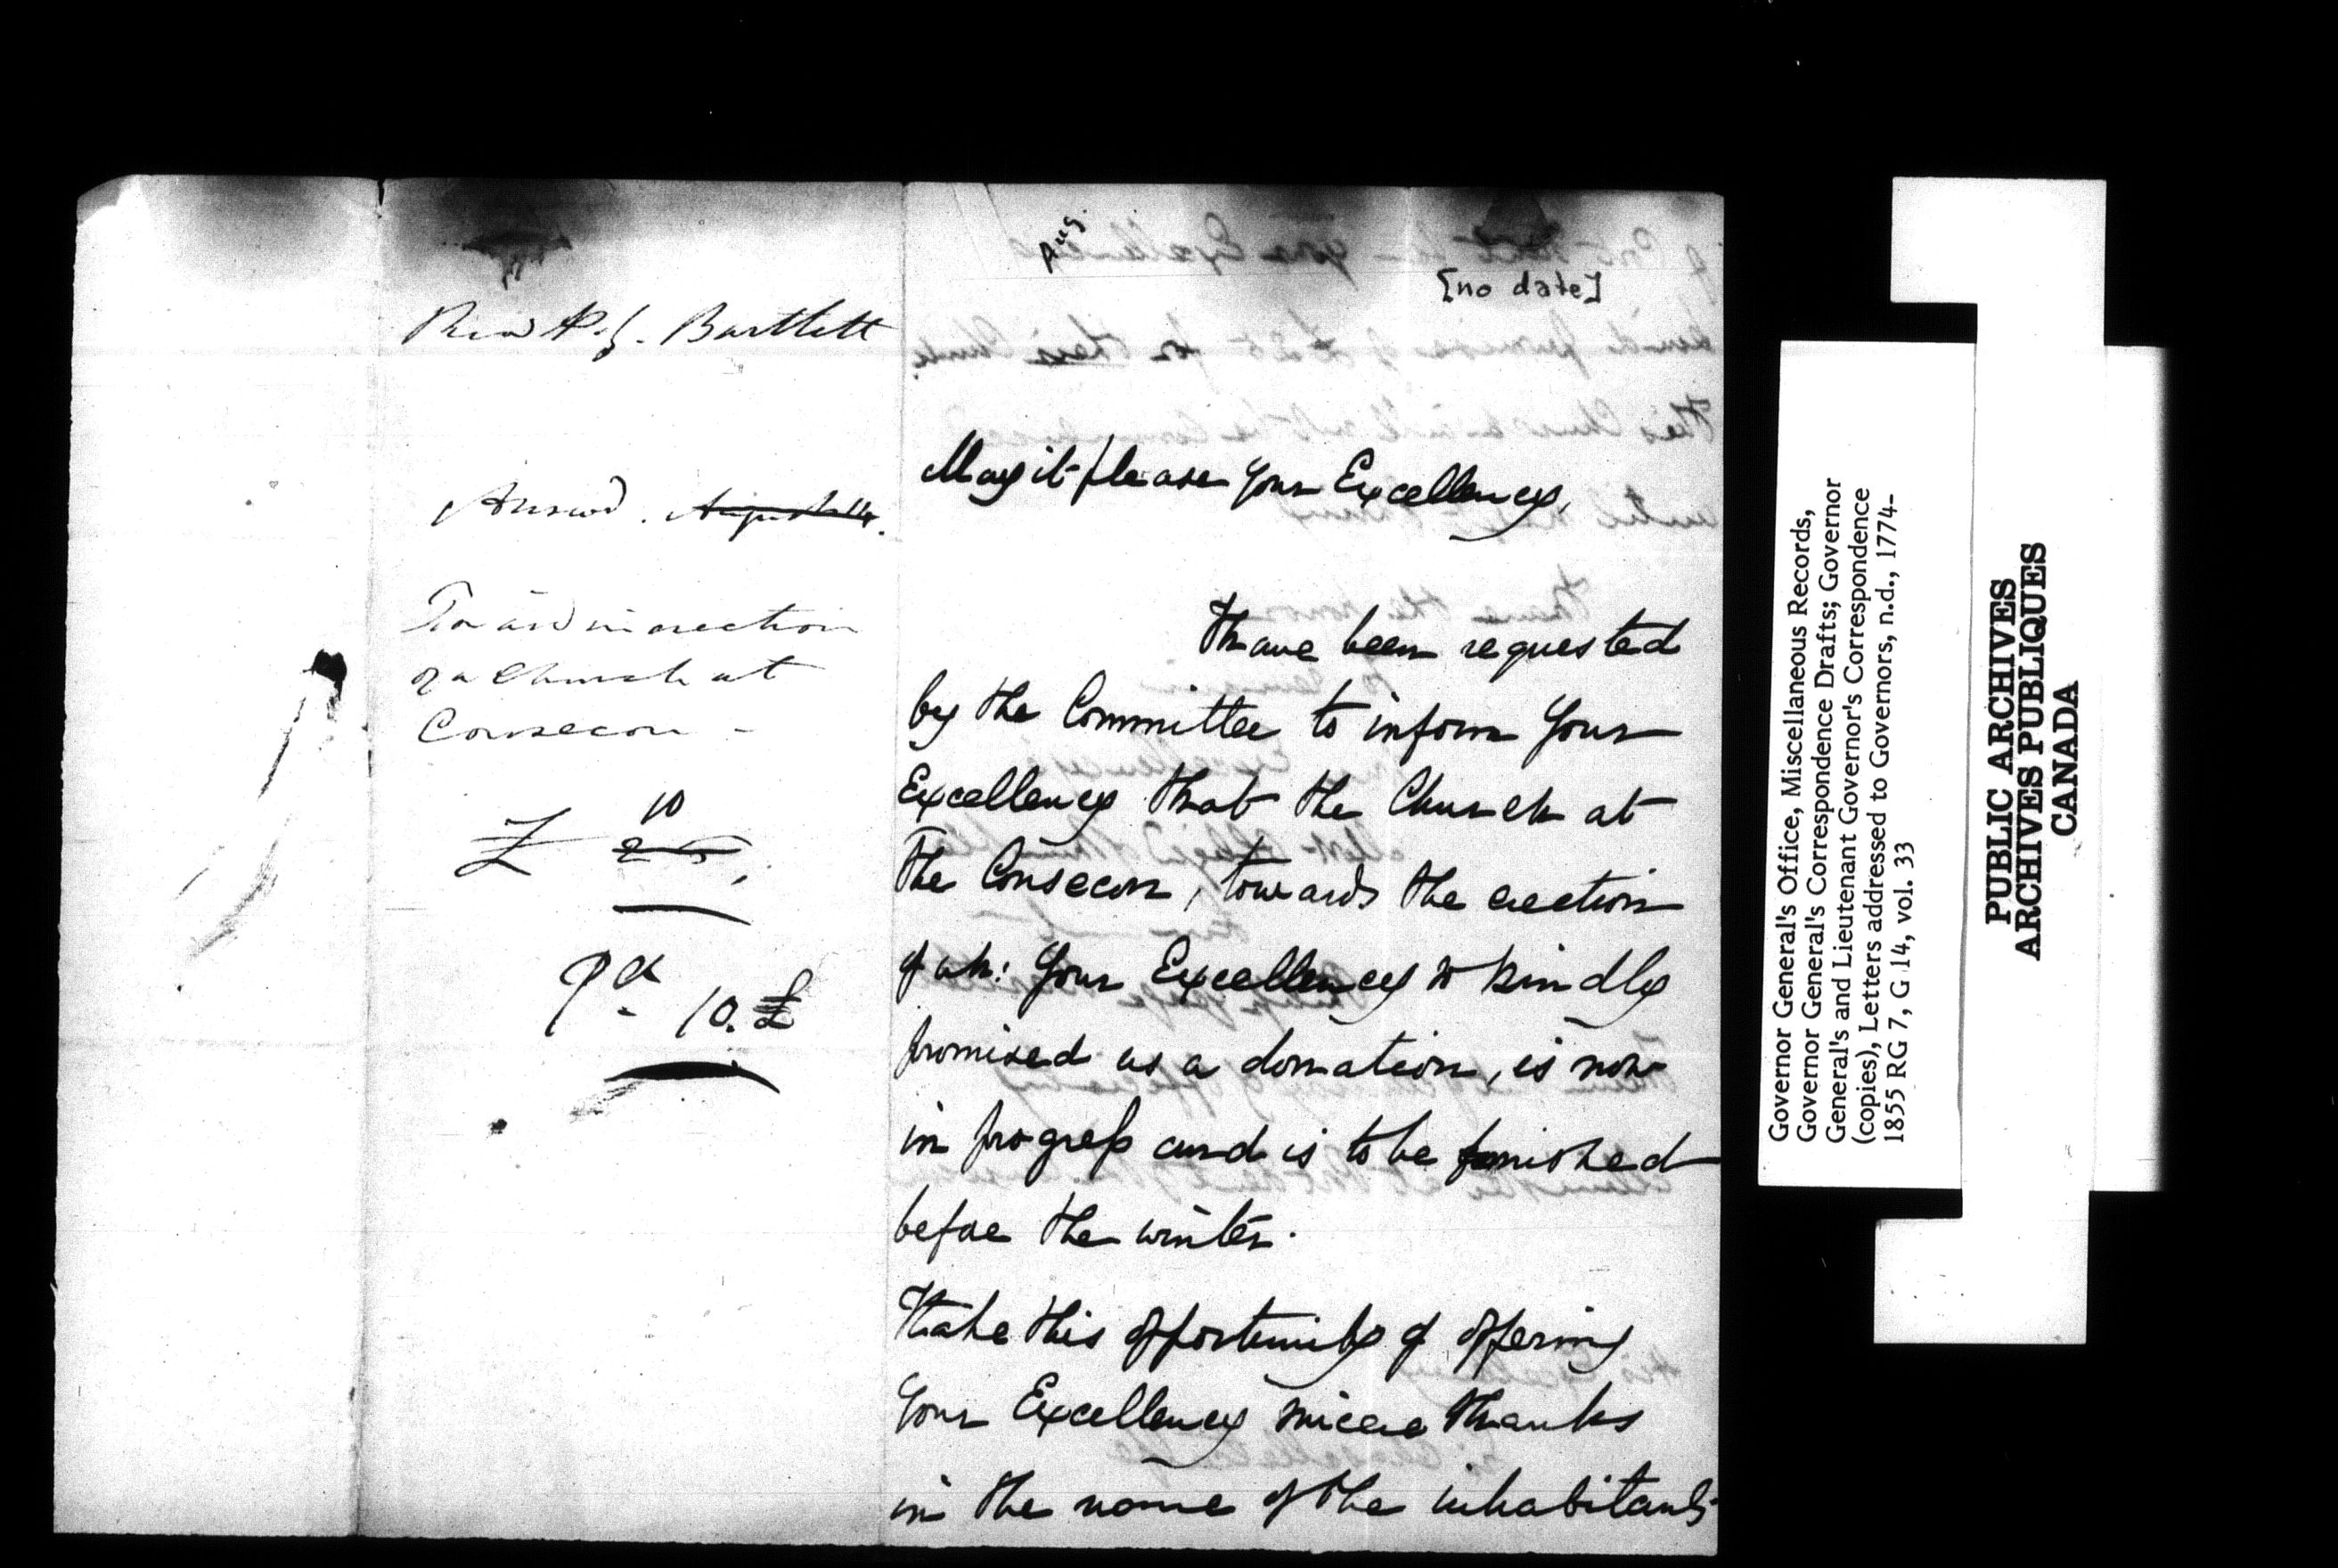 Revd P. G. Bartlett
Answd. August 14.
To aid in erection
of a Church at
Consecon -
10
£ 25,
Pd 10.£
Aug.
[no date]
May it please your Excellency,
I have been requested
by the Committee to inform Your
Excellency that the Church at
the Consecon, towards the erection
of wh: Your Excellency so kindly
promised us a donation, is now
in progress and is to be finished
before the winter.
I take this opportunity of offering
Your Excellency sincere thanks
in the name of the inhabitants
Governor General's Office, Miscellaneous Records,
Governor General's Correspondence Drafts; Governor
General's and Lieutenant Governor's Correspondence
(copies), Letters addressed to Governors, n.d., 1774-
1855 RG 7, G 14, vol. 33
PUBLIC ARCHIVES
ARCHIVES PUBLIQUES
CANADA